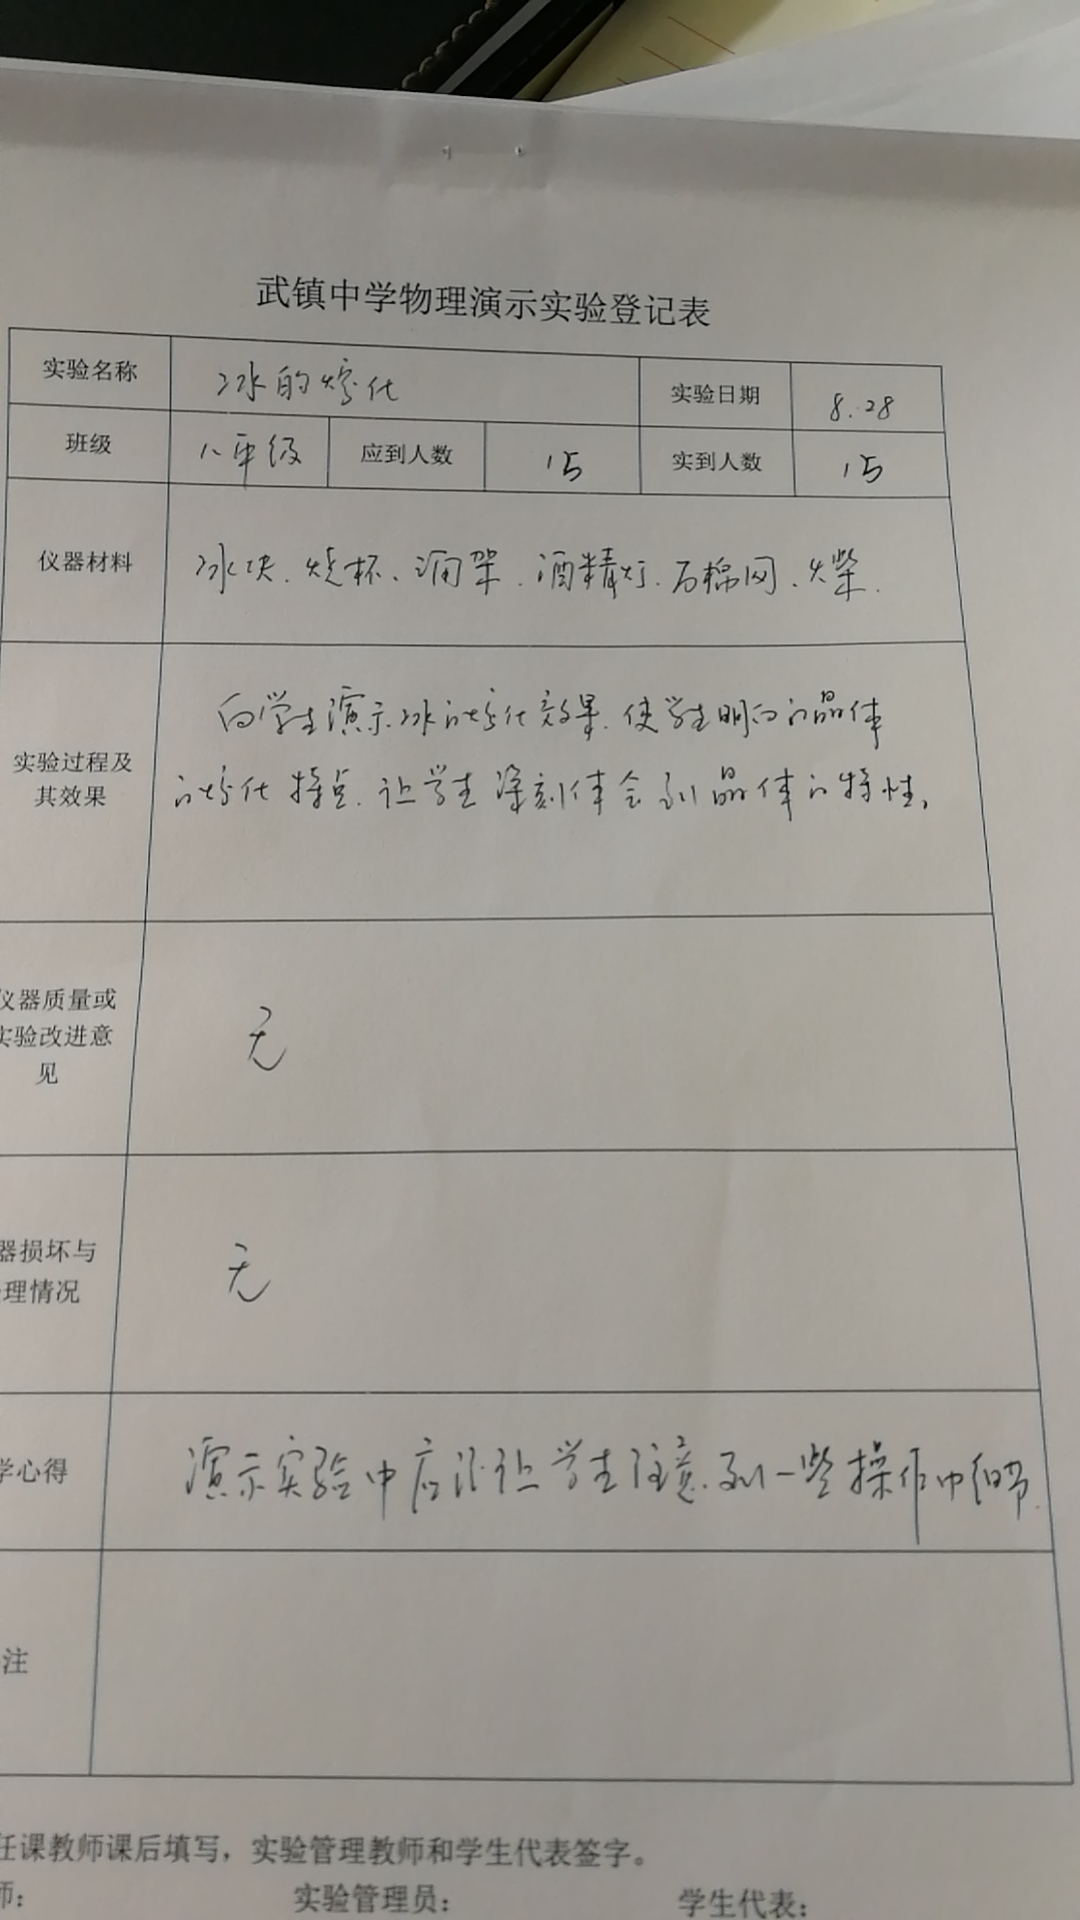 武镇中学物理演示实验登记表
实验名称 冰的熔化 实验日期 8.28
班级 八年级 应到人数 15 实到人数 15
仪器材料 冰块、烧杯、酒精灯、石棉网、火柴.
向学生演示冰的熔化效果.使学生明白的晶体
实验过程及
其效果
的熔化特点.让学生深刻体会到晶体的特性,
仪器质量或
实验改进意
见
无
器损坏与
理情况
无
学心得 演示实验中应该让学生注意到一些操作中细节.
注
任课教师课后填写，实验管理教师和学生代表签字。
师： 实验管理员： 学生代表：